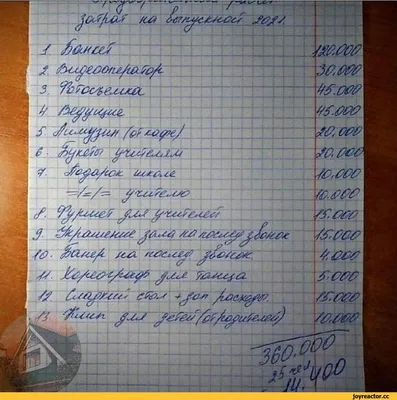 Предварительный расчет
затрат на выпускной 2021.
1 Банкет 120.000
2. Видеооператор 30.000
3 Фотосъемка 45.000
4 Ведущие 45.000
5. Лимузин (от кафе) 20.000
6. Букеты учителям 20.000
7. Подарок школе 10.000
=/=/= учителю 10.000
8. Фуршет для учителей 15.000
9. Украшение зала на послед звонок 15.000
10. Банер на послед. звонок 4.000
11. Хореограф для танца 5.000
12 Сладкий стол + доп расходы. 15.000
13. Клип для детей (от родителей) 10.000
360.000
25 чел
14.400
joyreactor.cc